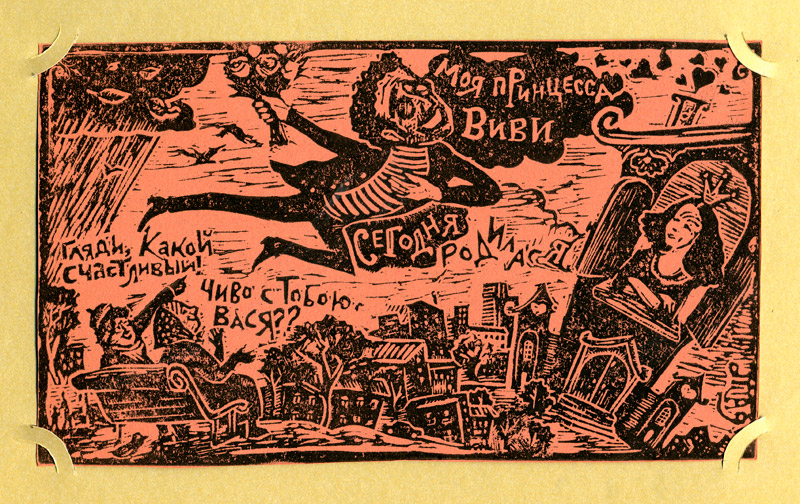 Моя принцесса
Виви
Сегодня
родилася
гляди, какой
счастливый!
Чиво с тобою,
Вася??